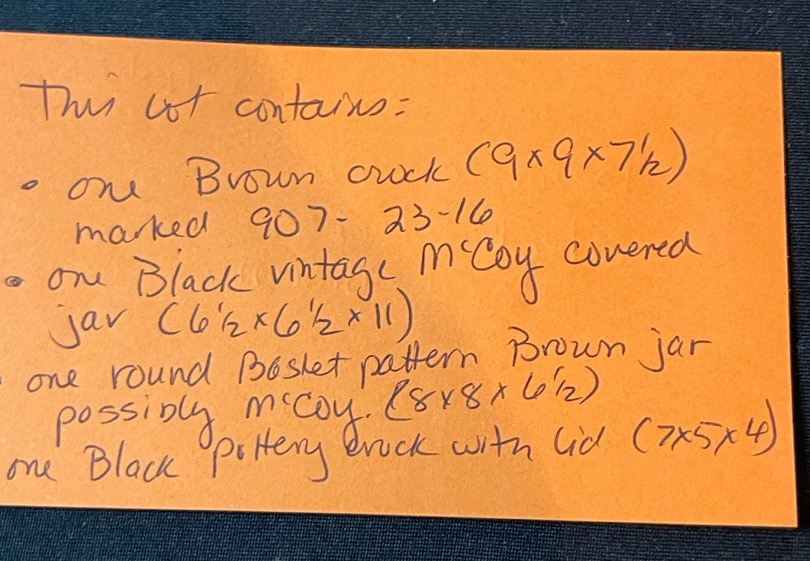 This lot contains:
• one Brown crock (9x9x7½)
marked 907- 23-16
• one Black vintage McCoy covered
jar (6½x6½x11)
• one round Basket pattern Brown jar
possibly McCoy. (8x8x6½)
one Black Pottery crock with lid (7x5x4)